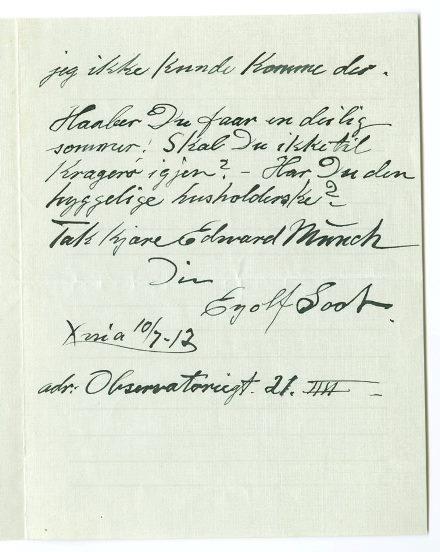 jeg ikke kunde komme der.
Haaber Du faar en deilig
sommer! Skal Du ikke til
Kragerø igjen? – Har Du den
hyggelige husholderske?
Tak kjære Edvard Munch
Din
Eyolf Soot.
Xnia 10/7-12
adr: Observatoriegt. 21. IIII –